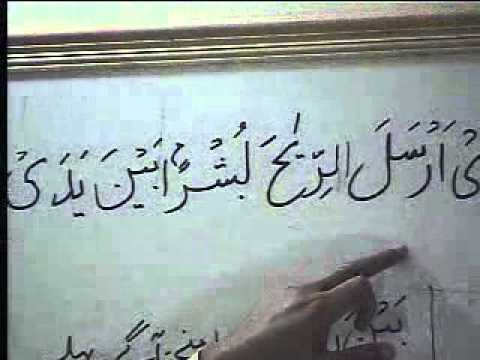 ىْ اَرْسَلَ الرِّيٰحَ بُشْرًۢا بَيْنَ يَدَىْ
بَيْنَ آگے پہلے